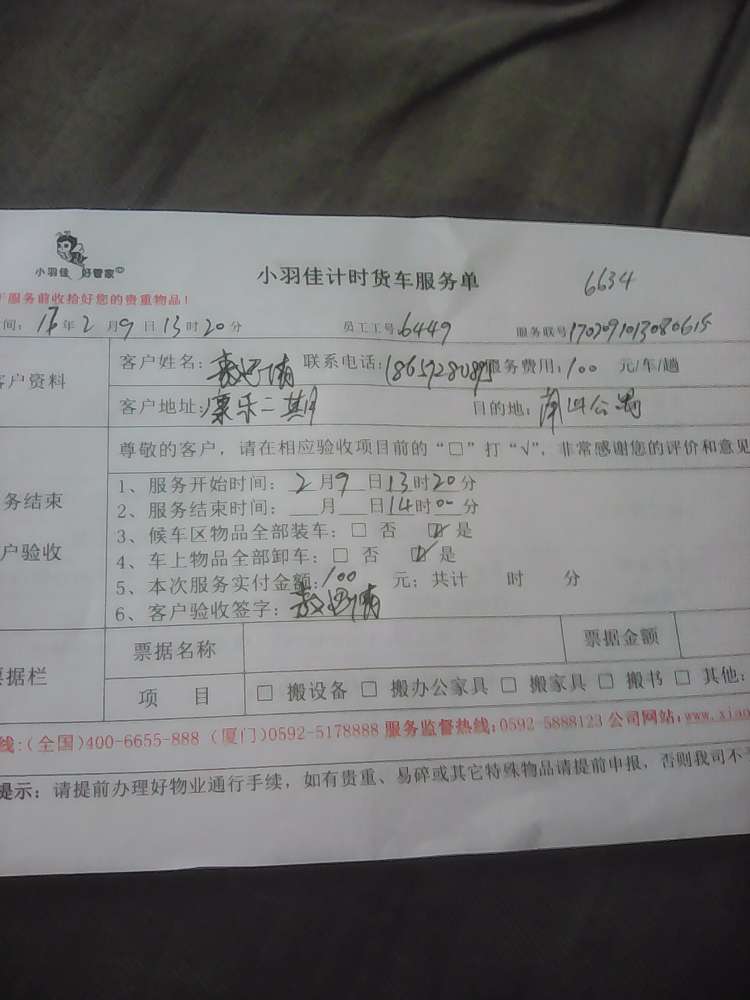 小羽佳 好管家
小羽佳计时货车服务单 6634
服务前收拾好您的贵重物品！
间：17年2月9日13时20分 员工工号6449 服务联号1702091013080615
客户资料
客户姓名： 联系电话： 服务费用：100 元/车/趟
客户地址：康乐二期 目的地：南山公寓
尊敬的客户，请在相应验收项目前的“□”打“√”，非常感谢您的评价和意见
务结束
户验收
1、服务开始时间：2月9日13时20分
2、服务结束时间：__月__日14时00分
3、候车区物品全部装车：□ 否 ☑ 是
4、车上物品全部卸车：□ 否 ☑ 是
5、本次服务实付金额：100 元；共计 时 分
6、客户验收签字：
票据栏
票据名称 票据金额
项 目 □ 搬设备 □ 搬办公家具 □ 搬家具 □ 搬书 □ 其他：
线：(全国)400-6655-888 (厦门)0592-5178888 服务监督热线：0592-5888123 公司网站：www.xiao
提示：请提前办理好物业通行手续，如有贵重、易碎或其它特殊物品请提前申报，否则我司不